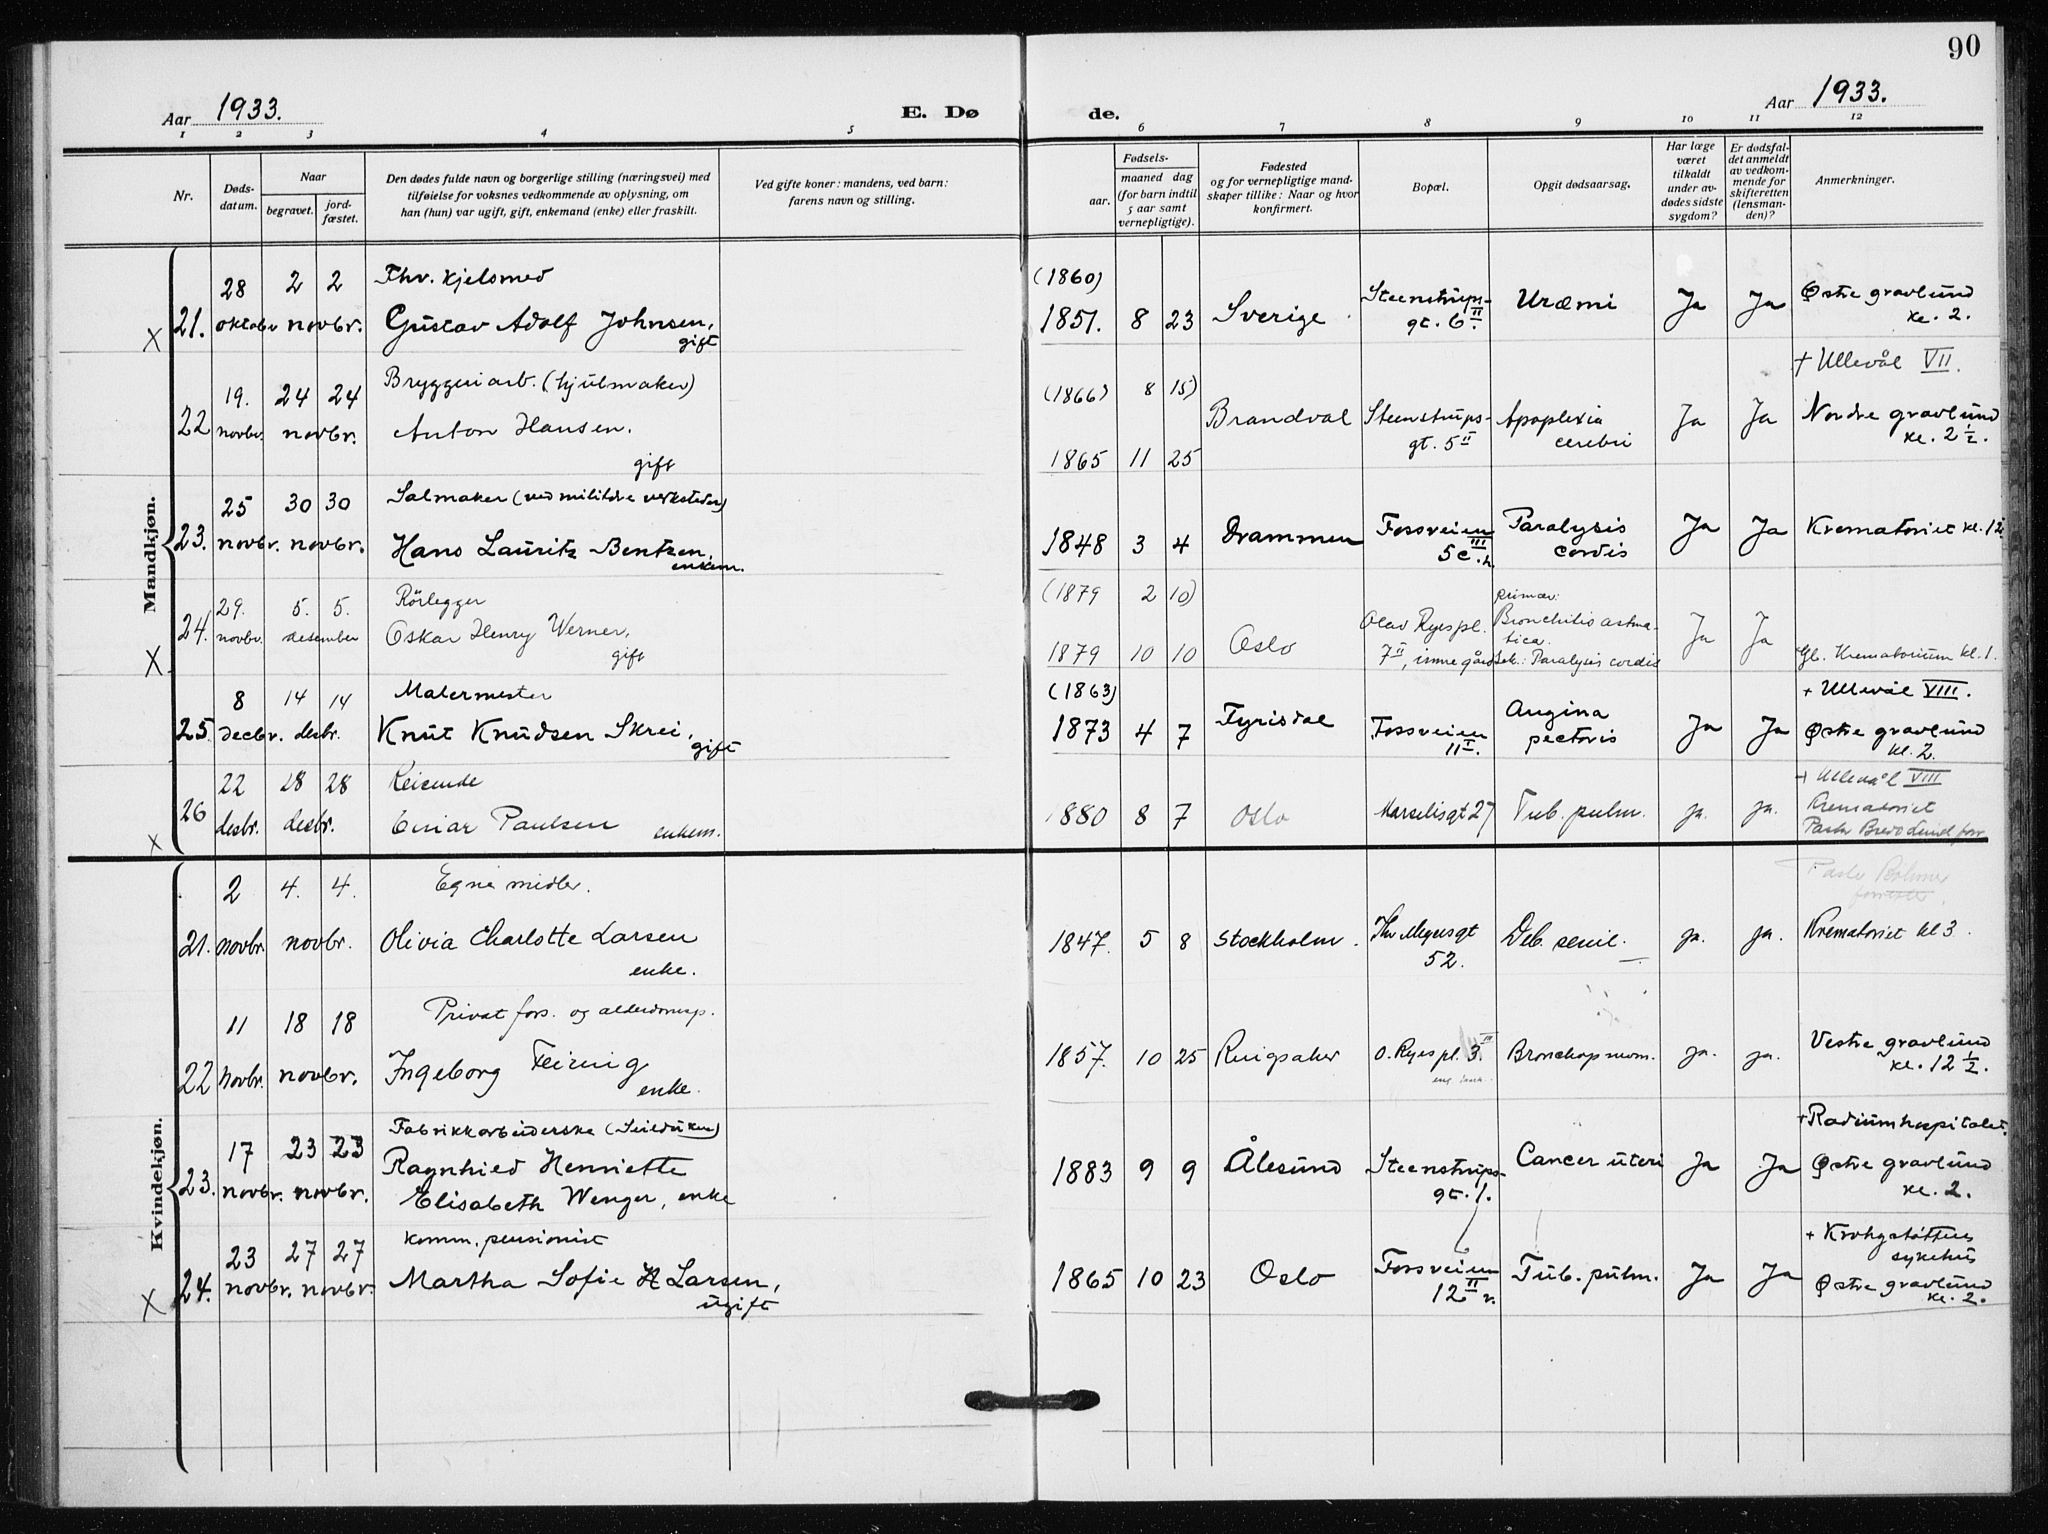 90
Aar 1933.
E. Dø de.
Aar 1933.
1 2 3 4 5 6 7 8 9 10 11 12
Nr.
Døds-
datum.
Naar
begravet.
jord-
fæstet.
Den dødes fulde navn og borgerlige stilling (næringsvei) med
tilføielse for voksnes vedkommende av oplysning, om
han (hun) var ugift, gift, enkemand (enke) eller fraskilt.
Ved gifte koner: mandens, ved barn:
farens navn og stilling.
Fødsels-
aar.
maaned dag
(for barn indtil
5 aar samt
vernepligtige).
Fødested
og for vernepligtige mand-
skaper tillike: Naar og hvor
konfirmert.
Bopæl.
Opgit dødsaarsag.
Har læge
været
tilkaldt
under av-
dødes sidste
sygdom?
Er dødsfal-
det anmeldt
av vedkom-
mende for
skifteretten
(lensman-
den)?
Anmerkninger.
Mandkjøn.
28 2 2 Fhv. kjelsmed (1860)
X 21. oktobr novbr. Gustav Adolf Johnsen, gift 1851. 8 23 Sverige. Steenstrups-
gt. 6 II Uræmi Ja Ja Østre gravlund
kl. 2.
+ Ullevål VII.
19. 24 24 Bryggeriarb. (hjulmaker) (1866) 8 15)
22 novbr. novbr. Anton Hansen. Brandval Steenstrups-
gt. 5 II Apoplexia
cerebri Ja Ja Nordre gravlund
kl. 2 1/2.
gift 1865 11 25
25 30 30 Salmaker (ved militære verksteder)
23. novbr. novbr. Hans Lauritz Bentzen, enkem. 1848 3 4 Drammen Fossveien
5c III h. Paralysis
cordis Ja Ja Krematoriet kl. 12
29. 5. 5. Rörlegger (1879 2 10)
X 24. novbr. desember Oskar Henry Werner, gift 1879 10 10 Oslo Olav Ryes pl.
7 II, indre gård primær:
Bronchitis astma-
tica.
Sek.: Paralysis cordis Ja Ja Gl. Krematorium kl. 1.
8 14 14 Malermester (1863) + Ullevål VIII.
25. decbr. desbr. Knut Knudsen Skrei, gift 1873 4 7 Fyrisdal Fossveien
11 I. Angina
pectoris Ja Ja Østre gravlund
kl. 2.
22 28 28 Reisende + Ullevål VIII
X 26 desbr. desbr. Einar Paulsen enkem. 1880 8 7 Oslo Marselisgt 27 Tub. pulm. ja. ja. Krematoriet
Pastor Bredo Lund forr
Kvindekjøn.
2 4. 4. Egne midler.
21. novbr. novbr. Olivia Charlotte Larsen
enke. 1847. 5 8 Stockholm. Thv Meyersgt
52. Deb. senil. ja. ja. Krematoriet kl 3.
11 18 18 Privat fors. og alderdomsp.
22 Novbr. novbr. Ingeborg Feiring
enke. 1857. 10 25 Ringsaker O. Ryes pl. 3. II Bronchopneum. ja. ja. Vestre gravlund
kl. 12 1/2.
17 23 23 Fabrikkarbeiderske (Seilduken) + Radiumhospitalet.
23. novbr. novbr. Ragnhild Henriette
Elisabeth Wenger, enke 1883 9 9 Ålesund Steenstrups-
gt. 1. Cancer uteri Ja Ja Østre gravlund
kl. 2.
23 27 27 Komm. pensionist + Krohgstøttens
sykehus
X 24. novbr. novbr. Martha Sofie H Larsen,
ugift 1865 10 23 Oslo Fossveien
12 II v. Tub. pulm. Ja Ja Østre gravlund
kl. 2.